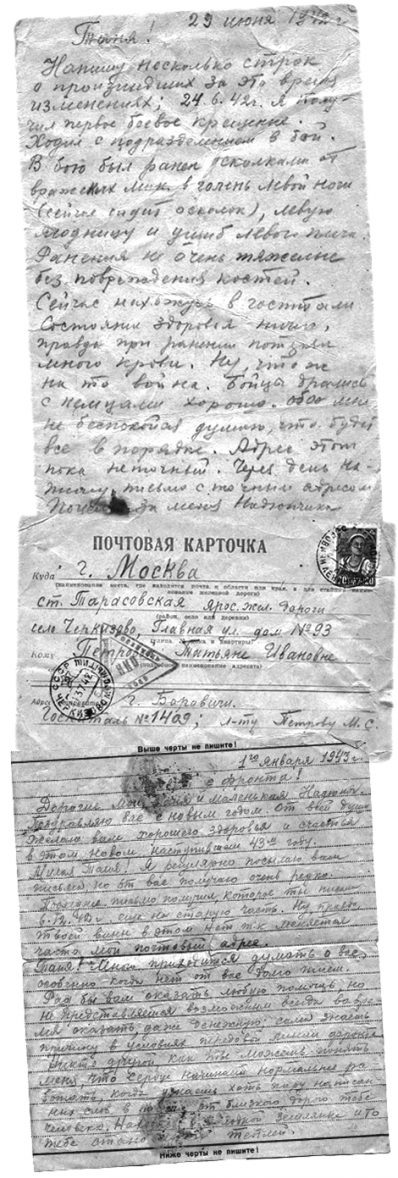 29 июня 1942 г
Таня!
Напишу несколько строк
о произшедших за это время
изменениях; 24.6.42г. я полу-
чил первое боевое крещение.
Ходил с подразделением в бой.
В бою был ранен осколками от
вражеских мин. в голень левой ноги
(сейчас сидит осколок), левую
ягодницу и ушиб левого плеча.
Ранения не очень тяжелые
без повреждения костей.
Сейчас нахожусь в госпитали
Состояние здоровья ничего,
правда при ранении потерял
много крови. Ну, что ж
на то война. Бойцы дрались
с немцами хорошо. обо мне
не беспокойся думаю, что будет
все в порядке. Адрес этот
пока неточный. Через день на-
пишу письмо с точным адресом
за меня Надюшку
ПОЧТОВАЯ КАРТОЧКА
Куда г. Москва
(наименование места, где находится почта и области или края, а для станций наиме-
нование железной дороги)
ст. Тарасовская Яросл. жел. дороги
(район, село или деревня)
село Черкизово, Главная ул. дом № 93
Кому Петровой Татьяне Ивановне
(подробное наименование адресата)
Адрес г. Боровичи
Госпиталь № 1409; л-ту Петрову М.С.
Выше черты не пишите!
1го января 1943 г.
с фронта!
Дорогие мои, Таня и маленькая Надюшка.
Поздравляю вас с новым годом от всей души
Желаю вам хорошего здоровья и счастья
в этом новом наступившем 43-м году.
Милая Таня! Я регулярно посылаю вам
письма, но от вас получаю очень редко.
письмо получил, которое ты писала
6.12.42г еще на старую часть. Ну правда
твоей вины в этом нет т.к. меняется
часто мой почтовый адрес.
Таня! Мне приходится думать о вас,
особенно когда нет от вас долго писем.
Рад бы вам оказать любую помощь, но
не представляется возможным всегда
оказать, даже денежную,
в условиях передовой линии
Никто другой как ты можешь понять
меня, что сердце начинает нормально ра-
ботать, когда узнаешь хоть пару написан-
ных слов в от близкого дорого тебе
человека. землянке и то
тебе теплей.
Ниже черты не пишите!